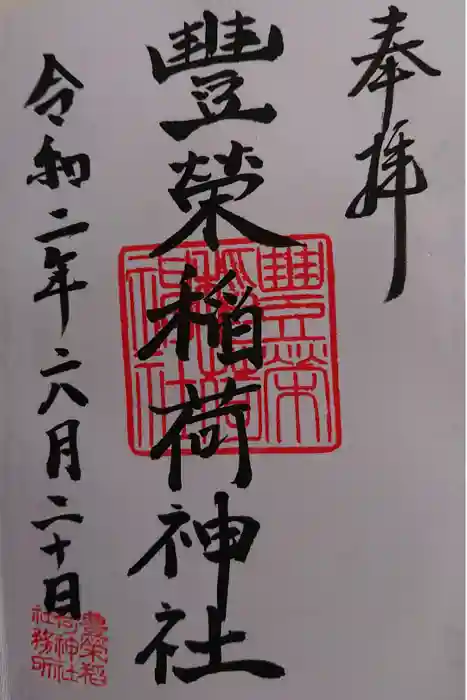 奉拝
豐榮稲荷神社
豊榮
稲荷
神社
令和二年六月二十日
豊榮稲
荷神社
社務所